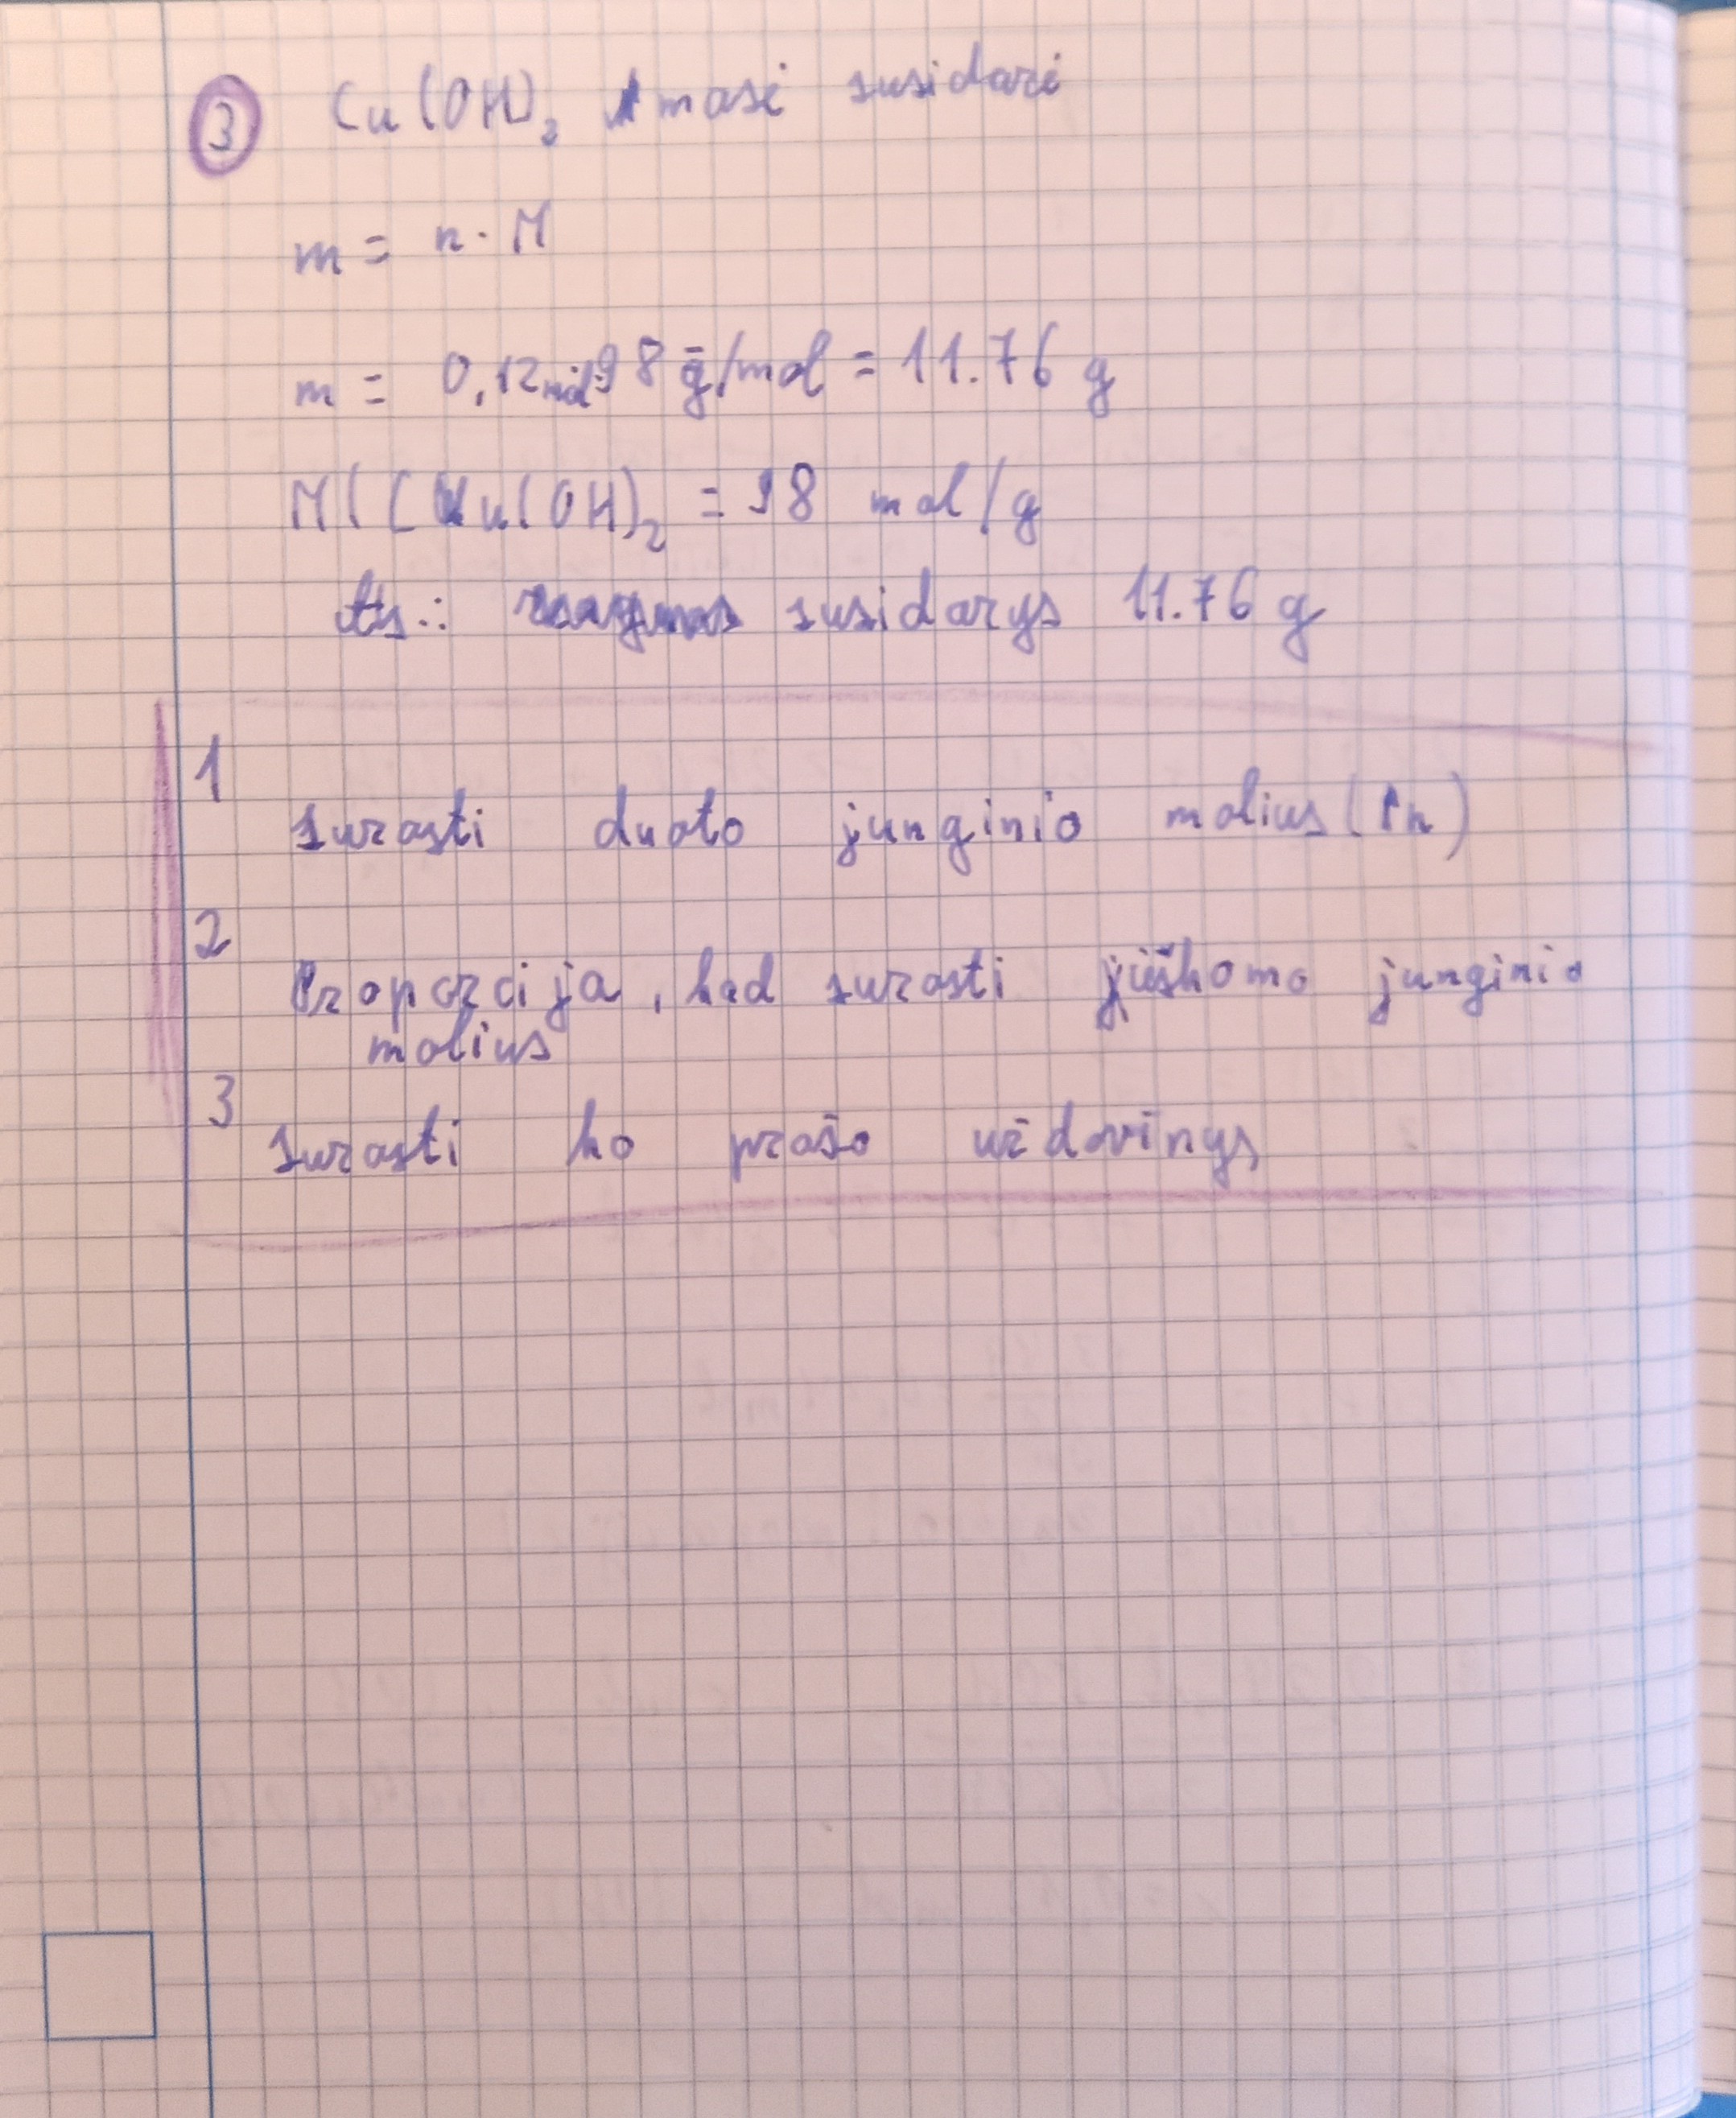 3 Cu(OH)₂ masė susidarė
m = n · M
m = 0,12 mol · 98 g/mol = 11.76 g
M(Cu(OH)₂ = 98 mol/g
Ats.: susidarys 11.76 g
1
surasti duoto junginio molius (n)
2
Proporcija, kad surasti ieškomo junginio
molius
3
surasti ko prašo uždavinys